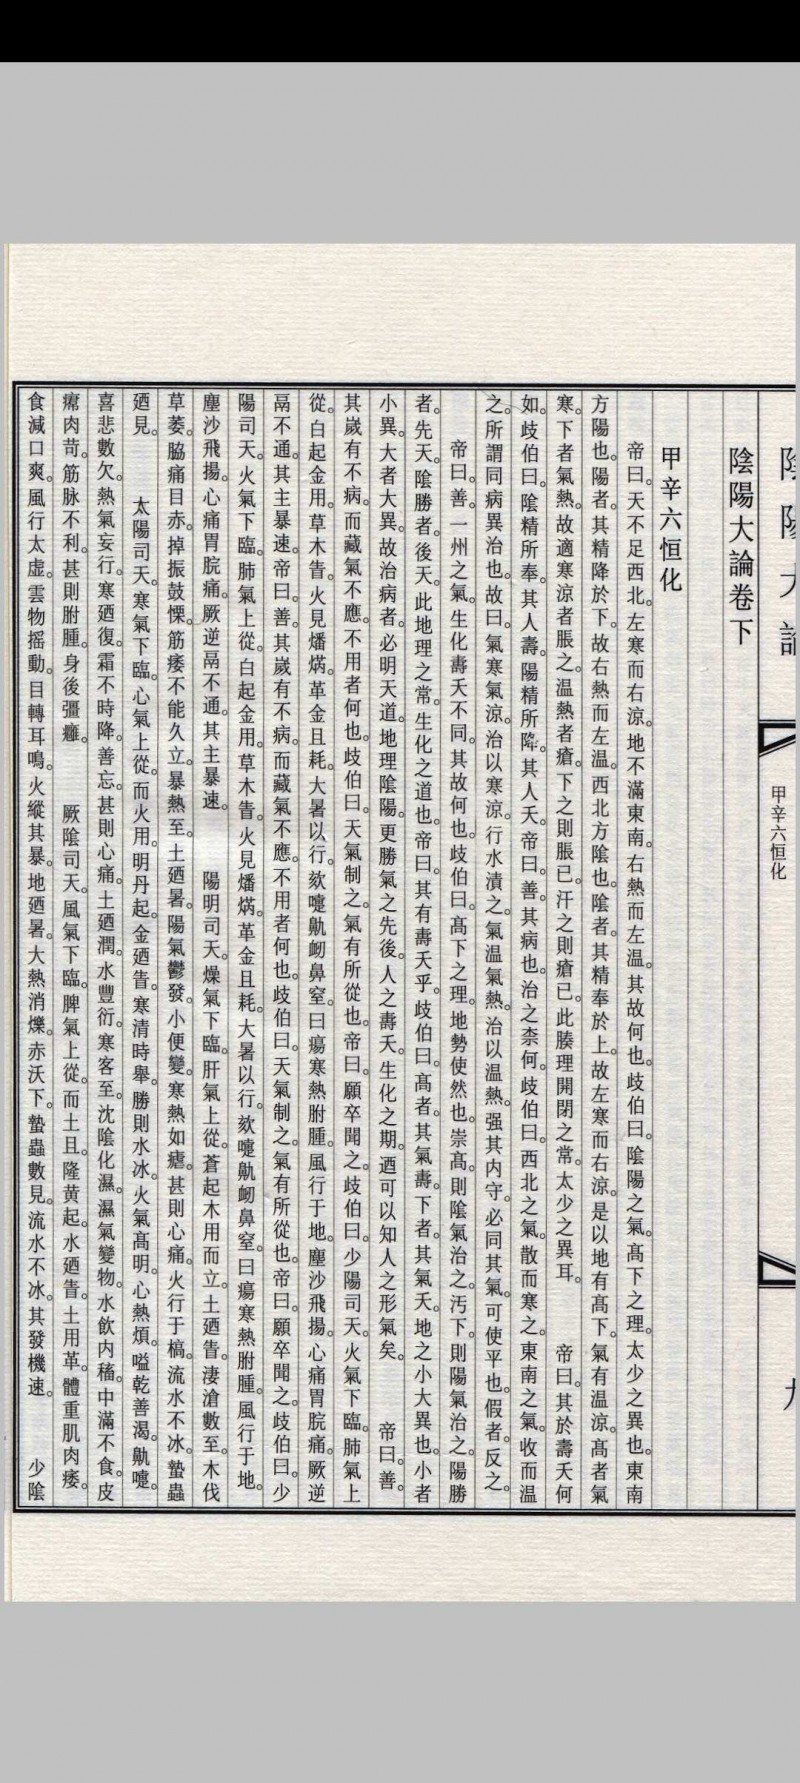 陰陽大論
甲辛六恒化
九
陰陽大論卷下
甲辛六恒化
帝曰。天不足西北。左寒而右涼。地不滿東南。右熱而左温。其故何也。歧伯曰。陰陽之氣。髙下之理。太少之異也。東南
方陽也。陽者。其精降於下。故右熱而左温。西北方陰也。陰者。其精奉於上。故左寒而右涼。是以地有髙下。氣有温涼。髙者氣
寒。下者氣熱。故適寒涼者脹之。温熱者瘡。下之則脹已。汗之則瘡已。此腠理開閉之常。太少之異耳。 帝曰。其於壽夭何
如。歧伯曰。陰精所奉。其人壽。陽精所降。其人夭。帝曰。善。其病也。治之柰何。歧伯曰。西北之氣。散而寒之。東南之氣。收而温
之。所謂同病異治也。故曰。氣寒氣涼。治以寒涼。行水漬之。氣温氣熱。治以温熱。强其内守。必同其氣。可使平也。假者反之。
帝曰。善。一州之氣。生化壽夭不同。其故何也。歧伯曰。髙下之理。地勢使然也。崇髙。則陰氣治之。污下。則陽氣治之。陽勝
者。先天。陰勝者。後天。此地理之常。生化之道也。帝曰。其有壽夭乎。歧伯曰。髙者。其氣壽。下者。其氣夭。地之小大異也。小者
小異。大者大異。故治病者。必明天道。地理陰陽。更勝氣之先後。人之壽夭。生化之期。迺可以知人之形氣矣。 帝曰。善。
其嵗有不病。而藏氣不應。不用者何也。歧伯曰。天氣制之。氣有所從也。帝曰。願卒聞之。歧伯曰。少陽司天。火氣下臨。肺氣上
從。白起金用。草木眚。火見燔焫。革金且耗。大暑以行。欬嚏鼽衂鼻窒。曰瘍寒熱胕腫。風行于地。塵沙飛揚。心痛胃脘痛。厥逆
鬲不通。其主暴速。帝曰。善。其嵗有不病。而藏氣不應。不用者何也。歧伯曰。天氣制之。氣有所從也。帝曰。願卒聞之。歧伯曰。少
陽司天。火氣下臨。肺氣上從。白起金用。草木眚。火見燔焫。革金且耗。大暑以行。欬嚏鼽衂鼻窒。曰瘍寒熱胕腫。風行于地。
塵沙飛揚。心痛胃脘痛。厥逆鬲不通。其主暴速。 陽明司天。燥氣下臨。肝氣上從。蒼起木用而立。土廼眚。淒滄數至。木伐
草萎。脇痛目赤。掉振鼓慄。筋痿不能久立。暴熱至。土廼暑。陽氣鬱發。小便變。寒熱如瘧。甚則心痛。火行于槁。流水不冰。蟄蟲
廼見。 太陽司天。寒氣下臨。心氣上從。而火用。明丹起。金廼眚。寒清時舉。勝則水冰。火氣髙明。心熱煩。嗌乾善渴。鼽嚏。
喜悲數欠。熱氣妄行。寒廼復。霜不時降。善忘。甚則心痛。土廼潤。水豐衍。寒客至。沈陰化濕。濕氣變物。水飲内稸。中滿不食。皮
𤸷肉苛。筋脉不利。甚則胕腫。身後彊癰。 厥陰司天。風氣下臨。脾氣上從。而土且。隆黄起。水廼眚。土用革。體重肌肉痿。
食減口爽。風行太虚。雲物摇動。目轉耳鳴。火縱其暴。地廼暑。大熱消爍。赤沃下。蟄蟲數見。流水不冰。其發機速。 少陰